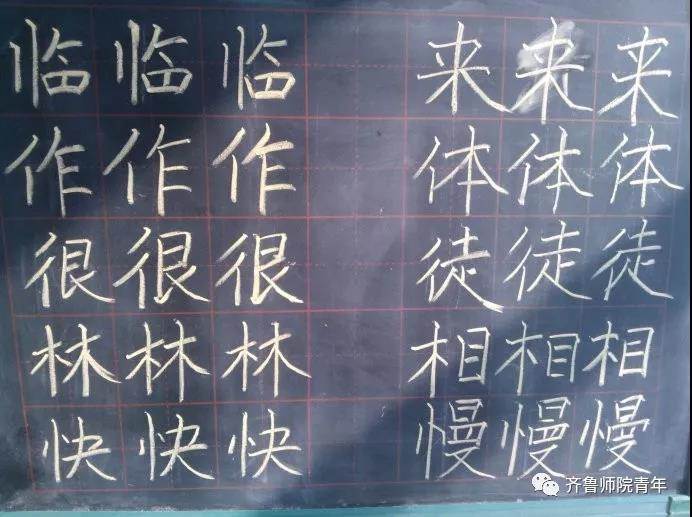 临临临 来来来
作作作 体体体
很很很 徒徒徒
林林林 相相相
快快快 慢慢慢
齐鲁师院青年